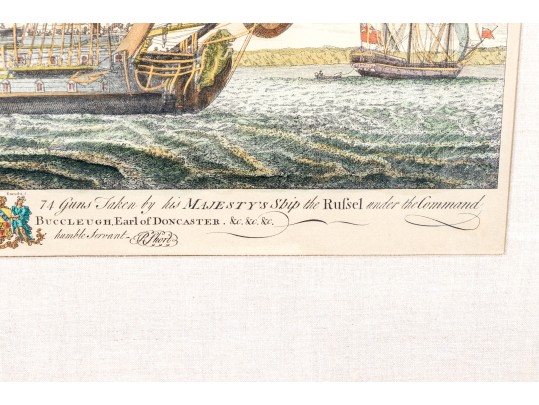 74 Guns Taken by his MAJESTY'S Ship the Ruſsel under the Command
BUCCLEUGH, Earl of DONCASTER. &c. &c. &c.
humble Servant P. Short